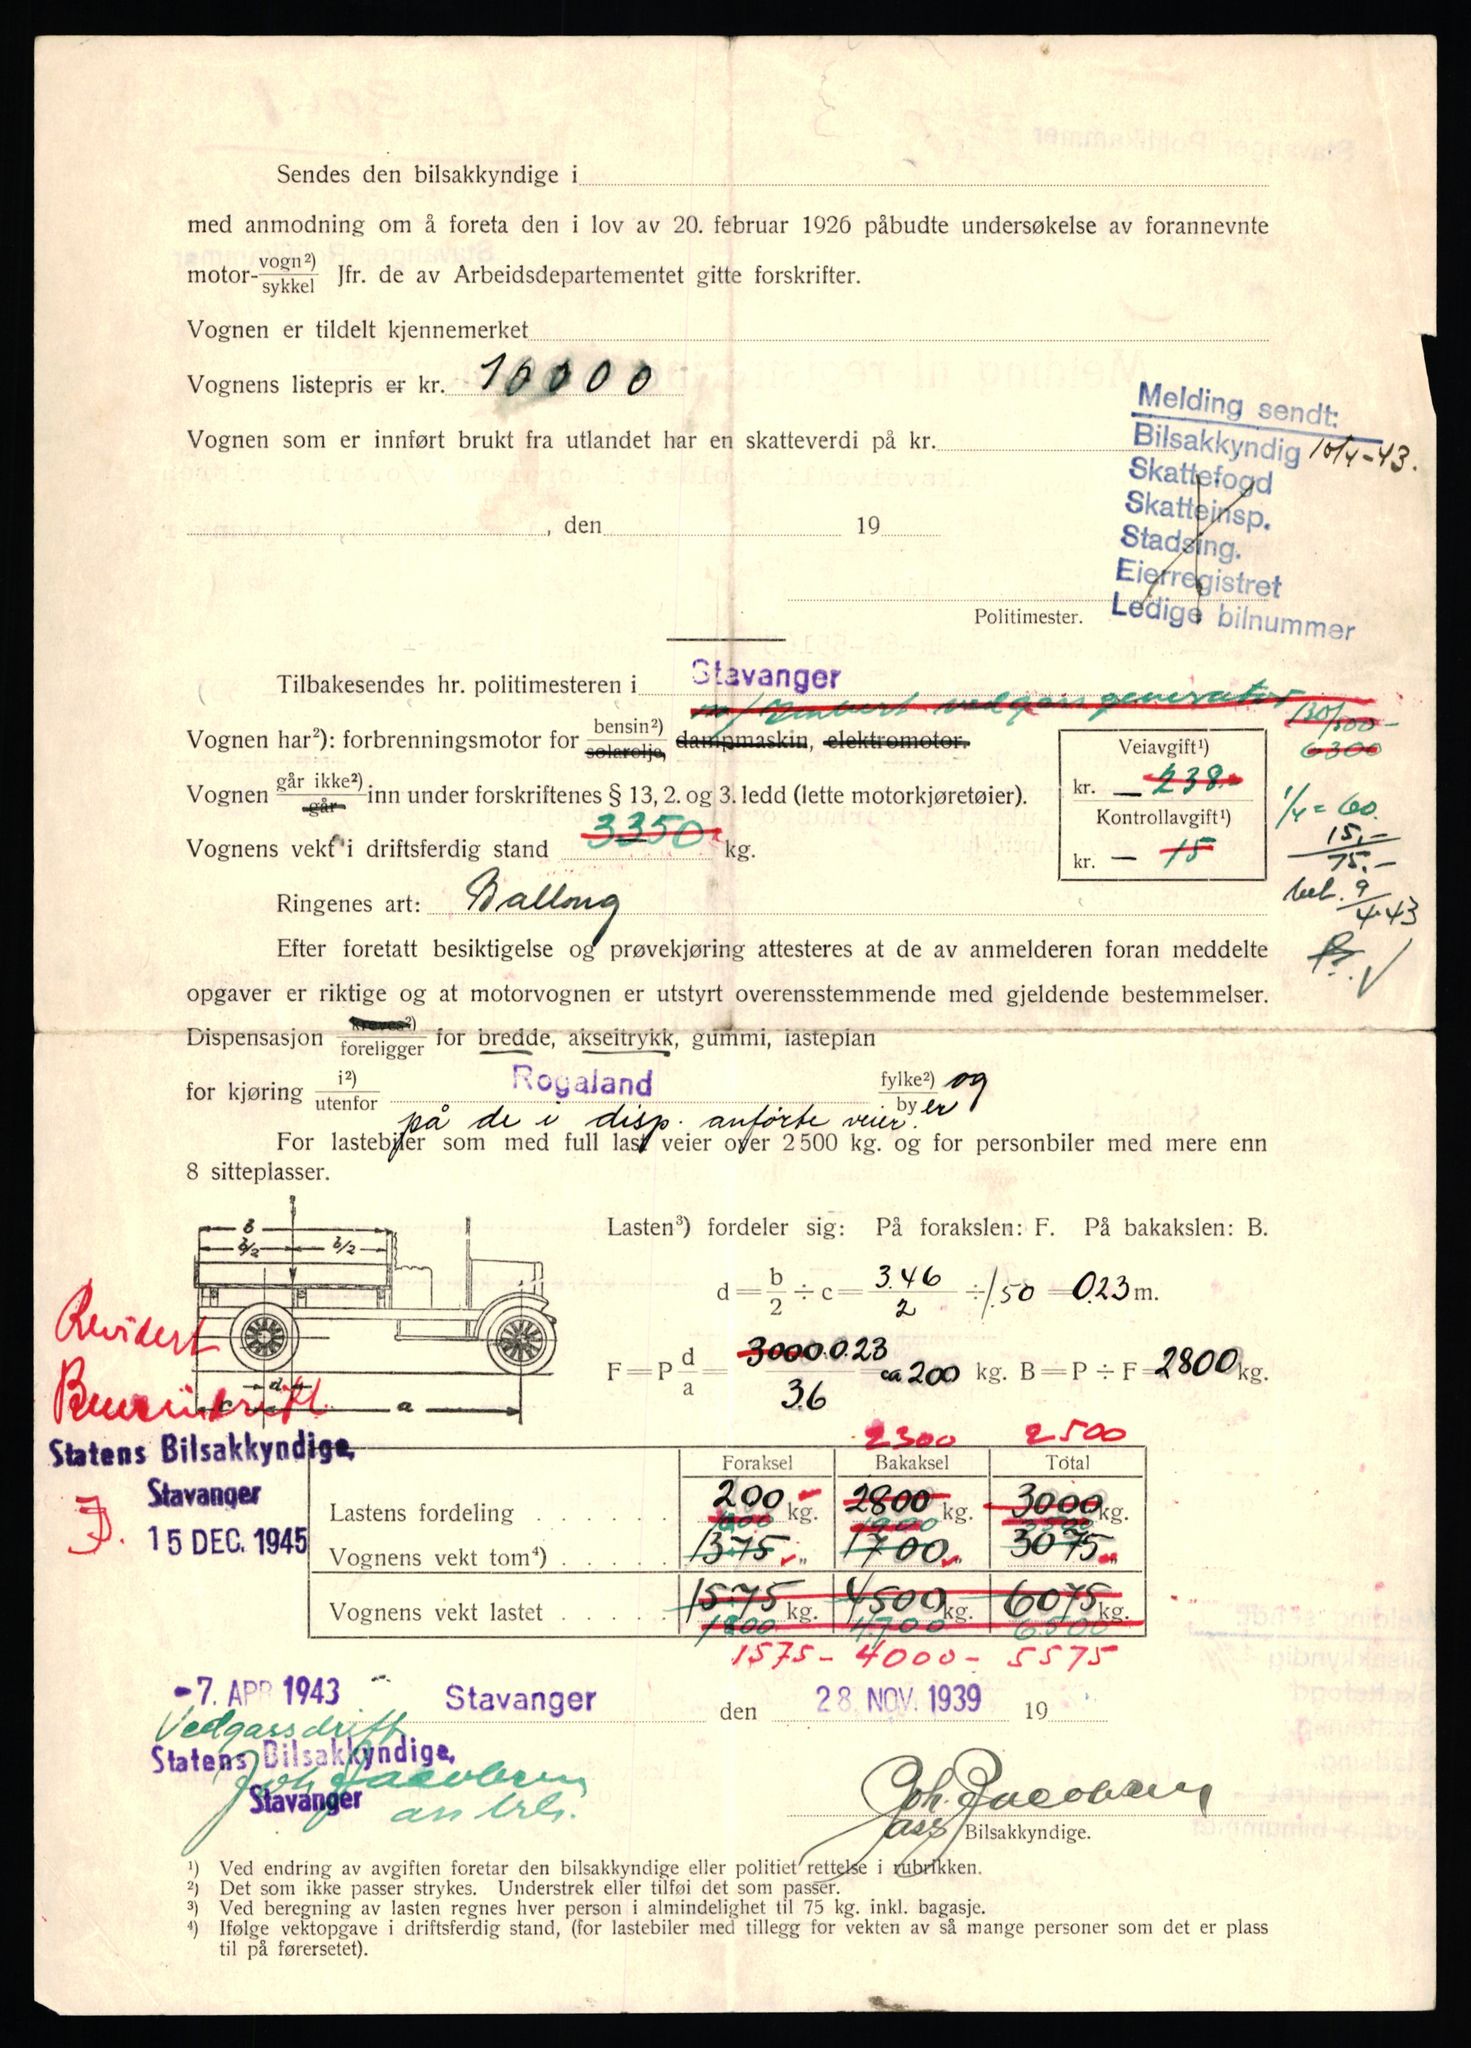 Sendes den bilsakkyndige i
med anmodning om å foreta den i lov av 20. februar 1926 påbudte undersøkelse av forannevnte
motor- vogn²) / sykkel Jfr. de av Arbeidsdepartementet gitte forskrifter.
Vognen er tildelt kjennemerket
Vognens listepris er kr. 10000
Melding sendt:
Vognen som er innført brukt fra utlandet har en skatteverdi på kr.
Bilsakkyndig 10/4-43.
Skattefogd
Skatteinsp.
, den 19
Stadsing.
Eierregistret
Ledige bilnummer
Politimester.
Tilbakesendes hr. politimesteren i Stavanger
m/ Imbert vedgassgenerator
130/500-
6300
Vognen har²): forbrenningsmotor for bensin²) / solarolje, dampmaskin, elektromotor.
Veiavgift¹)
kr. — 238.-
Vognen går ikke²) / går inn under forskriftenes § 13, 2. og 3. ledd (lette motorkjøretøier).
Kontrollavgift¹)
kr. — 15
1/4 = 60.
15.-
75.-
bet. 9/4-43
Vognens vekt i driftsferdig stand 3350 kg.
Ringenes art: Ballong
Efter foretatt besiktigelse og prøvekjøring attesteres at de av anmelderen foran meddelte
opgaver er riktige og at motorvognen er utstyrt overensstemmende med gjeldende bestemmelser.
Dispensasjon kreves²) / foreligger for bredde, akseltrykk, gummi, lasteplan
for kjøring i²) / utenfor Rogaland fylke²) / byer og
på de i disp. anførte veier.
For lastebiler som med full last veier over 2500 kg. og for personbiler med mere enn
8 sitteplasser.
B
b/2 b/2
d
c a
Lasten³) fordeler sig: På forakslen: F. På bakakslen: B.
d = b/2 ÷ c = 3.46/2 ÷ 1.50 = 0.23 m.
F = P d/a = 3000.0.23/3.6 = ca 200 kg. B = P ÷ F = 2800 kg.
Revidert
Bensindrift.
Statens Bilsakkyndige,
Stavanger
15 DEC. 1945
2300 2500
Foraksel Bakaksel Total
Lastens fordeling . . . . . . 200 kg. 2800 kg. 3000 kg.
Vognens vekt tom⁴) . . . . . 1375 „ 1700 „ 3075 „
Vognens vekt lastet . . . . . 1575 kg. 4500 kg. 6075 kg.
4700 6500
1575 - 4000 - 5575
-7. APR 1943 Stavanger den 28. NOV. 1939 19
Vedgassdrift
Statens Bilsakkyndige,
Joh Jacobsen
Stavanger
ass
Joh. Jacobsen
ass Bilsakkyndige.
¹) Ved endring av avgiften foretar den bilsakkyndige eller politiet rettelse i rubrikken.
²) Det som ikke passer strykes. Understrek eller tilføi det som passer.
³) Ved beregning av lasten regnes hver person i almindelighet til 75 kg. inkl. bagasje.
⁴) Ifølge vektopgave i driftsferdig stand, (for lastebiler med tillegg for vekten av så mange personer som det er plass
til på førersetet).